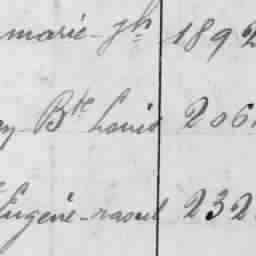 marie-jh 1892
Bte Louis 206
Eugène-raoul 232